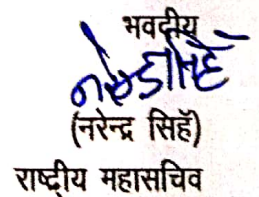 भवदीय
(नरेन्द्र सिहॅ)
राष्टीय महासचिव